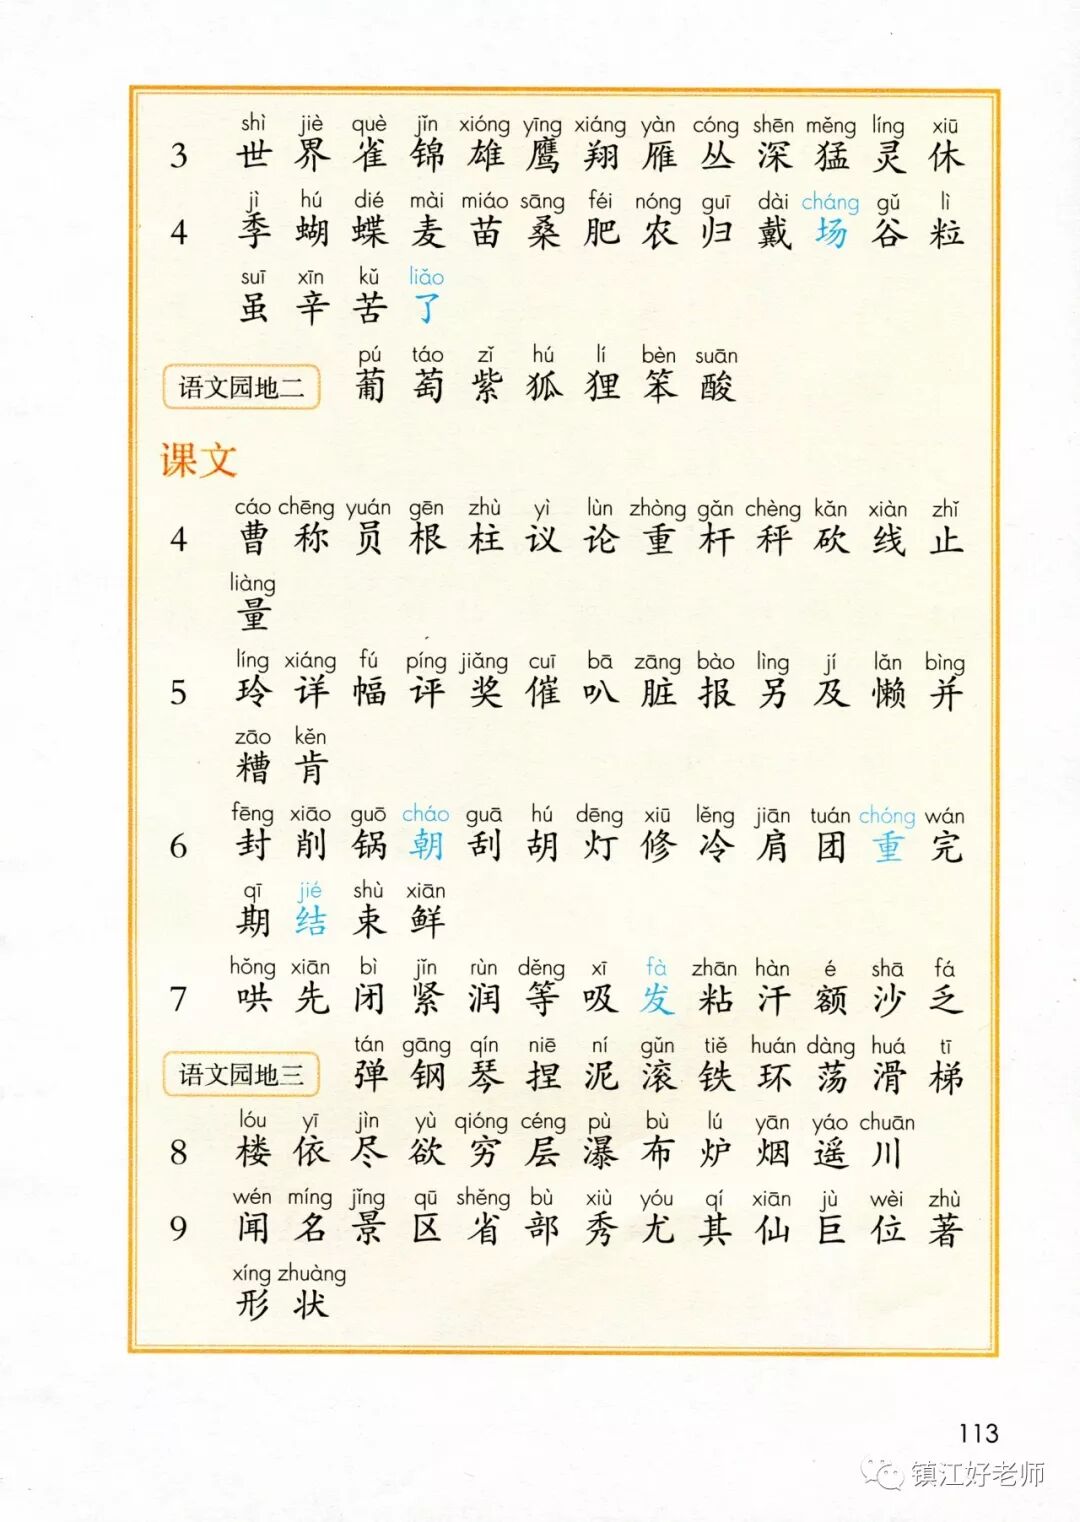 shì jiè què jǐn xióng yīng xiáng yàn cóng shēn měng líng xiū
3 世 界 雀 锦 雄 鹰 翔 雁 丛 深 猛 灵 休
jì hú dié mài miáo sāng féi nóng guī dài cháng gǔ lì
4 季 蝴 蝶 麦 苗 桑 肥 农 归 戴 场 谷 粒
suī xīn kǔ liǎo
虽 辛 苦 了
pú táo zǐ hú lí bèn suān
语文园地二 葡 萄 紫 狐 狸 笨 酸
课文
cáo chēng yuán gēn zhù yì lùn zhòng gǎn chèng kǎn xiàn zhǐ
4 曹 称 员 根 柱 议 论 重 杆 秤 砍 线 止
liàng
量
líng xiáng fú píng jiǎng cuī bā zāng bào lìng jí lǎn bìng
5 玲 详 幅 评 奖 催 叭 脏 报 另 及 懒 并
zāo kěn
糟 肯
fēng xiāo guō cháo guā hú dēng xiū lěng jiān tuán chóng wán
6 封 削 锅 朝 刮 胡 灯 修 冷 肩 团 重 完
qī jié shù xiān
期 结 束 鲜
hǒng xiān bì jǐn rùn děng xī fà zhān hàn é shā fá
7 哄 先 闭 紧 润 等 吸 发 粘 汗 额 沙 乏
tán gāng qín niē ní gǔn tiě huán dàng huá tī
语文园地三 弹 钢 琴 捏 泥 滚 铁 环 荡 滑 梯
lóu yī jìn yù qióng céng pù bù lú yān yáo chuān
8 楼 依 尽 欲 穷 层 瀑 布 炉 烟 遥 川
wén míng jǐng qū shěng bù xiù yóu qí xiān jù wèi zhù
9 闻 名 景 区 省 部 秀 尤 其 仙 巨 位 著
xíng zhuàng
形 状
113
镇江好老师